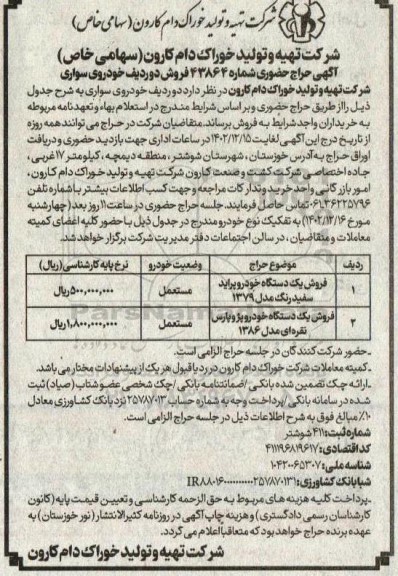 شرکت تهیه و تولید خوراک دام کارون (سهامی خاص)
شرکت تهیه و تولید خوراک دام کارون (سهامی خاص)
آگهی حراج حضوری شماره ۴۳۸۶۴ فروش دو ردیف خودروی سواری
شرکت تهیه و تولید خوراک دام کارون در نظر دارد دو ردیف خودروی سواری به شرح جدول
ذیل را از طریق حراج حضوری و بر اساس شرایط مندرج در استعلام بهاء و تعهدنامه مربوطه
به خریداران واجد شرایط به فروش برساند. متقاضیان شرکت در حراج می توانند همه روزه
از تاریخ درج این آگهی لغایت ۱۴۰۲/۱۲/۱۵ در ساعات اداری جهت بازدید حضوری و دریافت
اوراق حراج به آدرس خوزستان، شهرستان شوشتر، منطقه دیمچه، کیلومتر ۱۷ غربی،
جاده اختصاصی شرکت کشت و صنعت کارون شرکت تهیه و تولید خوراک دام کارون،
امور بازرگانی واحد خرید و تدارکات مراجعه و جهت کسب اطلاعات بیشتر با شماره تلفن
۰۶۱۳۶۲۲۵۷۹۶ تماس حاصل فرمایند. جلسه حراج حضوری در ساعت ۱۱ روز بعد (چهارشنبه
مورخ ۱۴۰۲/۱۲/۱۶) به تفکیک نوع خودرو مندرج در جدول ذیل با حضور کلیه اعضای کمیته
معاملات و متقاضیان، در سالن اجتماعات دفتر مدیریت شرکت برگزار خواهد شد.
ردیف موضوع حراج وضعیت خودرو نرخ پایه کارشناسی (ریال)
۱ فروش یک دستگاه خودرو پراید سفید رنگ مدل ۱۳۷۹ مستعمل ۵۰۰,۰۰۰,۰۰۰ ریال
۲ فروش یک دستگاه خودرو پژو پارس نقره ای مدل ۱۳۸۶ مستعمل ۱,۸۰۰,۰۰۰,۰۰۰
ـ حضور شرکت کنندگان در جلسه حراج الزامی است.
ـ کمیته معاملات شرکت خوراک دام کارون در رد یا قبول هر یک از پیشنهادات مختار می باشد.
ـ ارائه چک تضمین شده بانکی / ضمانتنامه بانکی / چک شخصی عضو شتاب (صیاد) ثبت
شده در سامانه بانکی / پرداخت وجه به شماره حساب ۲۵۷۸۷۰۱۳ نزد بانک کشاورزی معادل
۱۰٪ مبالغ فوق به شرح اطلاعات ذیل در جلسه حراج الزامی است.
شماره ثبت: ۴۱۱ شوشتر
کد اقتصادی: ۴۱۱۱۹۶۸۱۹۶۱۷
شناسه ملی: ۱۰۴۲۰۰۶۵۳۰۷
شبا بانک کشاورزی:
ـ پرداخت کلیه هزینه های مربوط به حق الزحمه کارشناسی و تعیین قیمت پایه (کانون
کارشناسان رسمی دادگستری) و هزینه چاپ آگهی در روزنامه کثیرالانتشار (نور خوزستان) به
عهده برنده حراج خواهد بود که متعاقبا اعلام می گردد.
شرکت تهیه و تولید خوراک دام کارون